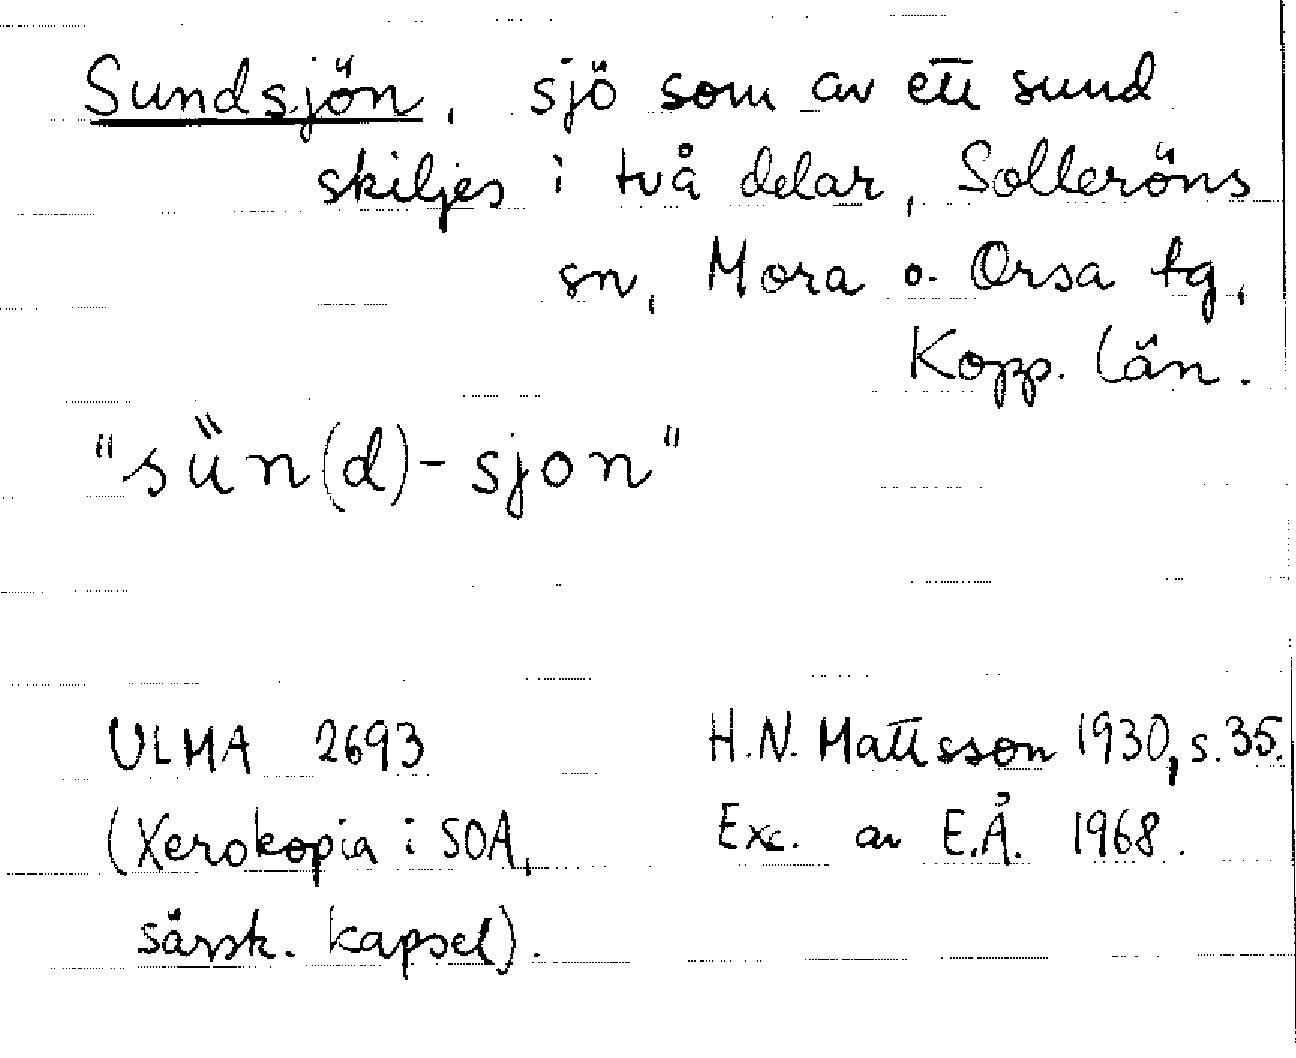 Sundsjön, sjö som av ett sund
skiljes i två delar, Solleröns
sn, Mora o. Orsa tg,
Kopp. län.
"sün(d)-sjon"
ULMA 2693 H.N. Mattsson 1930, s. 35.
(Xerokopia i SOA, Exc. av E.Å. 1968.
särsk. kapsel).